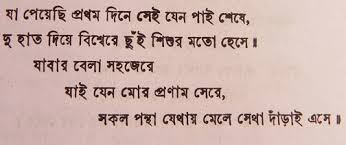 যা পেয়েছি প্রথম দিনে সেই যেন পাই শেষে,
দু হাত দিয়ে বিশ্বেরে ছুঁই শিশুর মতো হেসে॥
যাবার বেলা সহজেরে
যাই যেন মোর প্রণাম সেরে,
সকল পন্থা যেথায় মেলে সেথা দাঁড়াই এসে॥